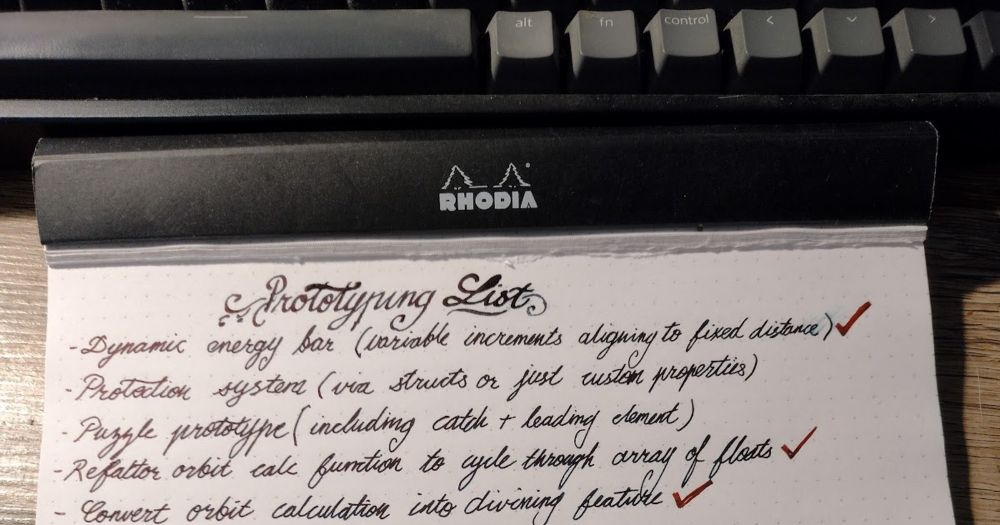 alt fn control < ⌄ >
RHODIA
Prototyping List
- Dynamic energy bar (variable increments aligning to fixed distance) ✓
- Protection system (via structs or just custom properties)
- Puzzle prototype (including catch + leading element)
- Refactor orbit calc function to cycle through array of floats ✓
- Convert orbit calculation into divining feature ✓